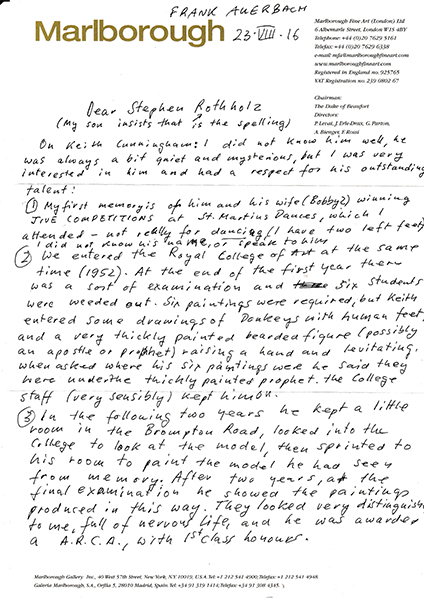 FRANK AUERBACH
Marlborough
23·VIII·16
Marlborough Fine Art (London) Ltd
6 Albemarle Street, London W1S 4BY
Telephone: +44 (0)20 7629 5161
Telefax: +44 (0)20 7629 6338
e-mail: mfa@marlboroughfineart.com
www.marlboroughfineart.com
Registered in England no. 925765
VAT Registration no. 239 0802 67
Chairman:
The Duke of Beaufort
Directors:
P. Levai, J. Erle-Drax, G. Parton,
A. Bienger, F. Rossi
Dear Stephen Rothholz
(My son insists that is the spelling)
On Keith Cunningham: I did not know him well, he
was always a bit quiet and mysterious, but I was very
interested in him and had a respect for his outstanding
talent:
① My first memory is of him and his wife (Bobby?) winning
JIVE COMPETITIONS at St. Martins Dances, which I
attended – not really for dancing (I have two left feet)
I did not know his name, or speak to him
② We entered the Royal College of Art at the same
time (1952). At the end of the first year there
was a sort of examination and six students
were weeded out. Six paintings were required, but Keith
entered some drawings of Donkeys with human feet,
and a very thickly painted bearded figure (possibly
an apostle or prophet) raising a hand and levitating,
when asked where his six paintings were he said they
were under the thickly painted prophet. The College
staff (very sensibly) kept him on.
③ In the following two years he kept a little
room in the Brompton Road, looked into the
College to look at the model, then sprinted to
his room to paint the model he had seen
from memory. After two years, at the
final examination he showed the paintings
produced in this way. They looked very distinguished
to me, full of nervous life, and he was awarded
a A.R.C.A., with 1st class honours.
Marlborough Gallery Inc., 40 West 57th Street, New York, NY 10019, U.S.A. Tel: +1 212 541 4900; Telefax: +1 212 541 4948.
Galería Marlborough, S.A., Orfila 5, 28010 Madrid, Spain. Tel: +34 91 319 1414; Telefax: +34 91 308 4345.